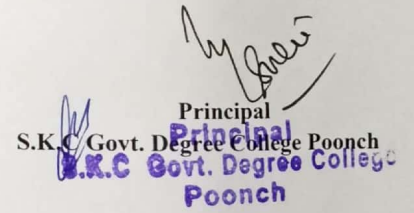 Principal
S.K.C Govt. Degree College Poonch
Principal
S.K.C Govt. Degree College
Poonch